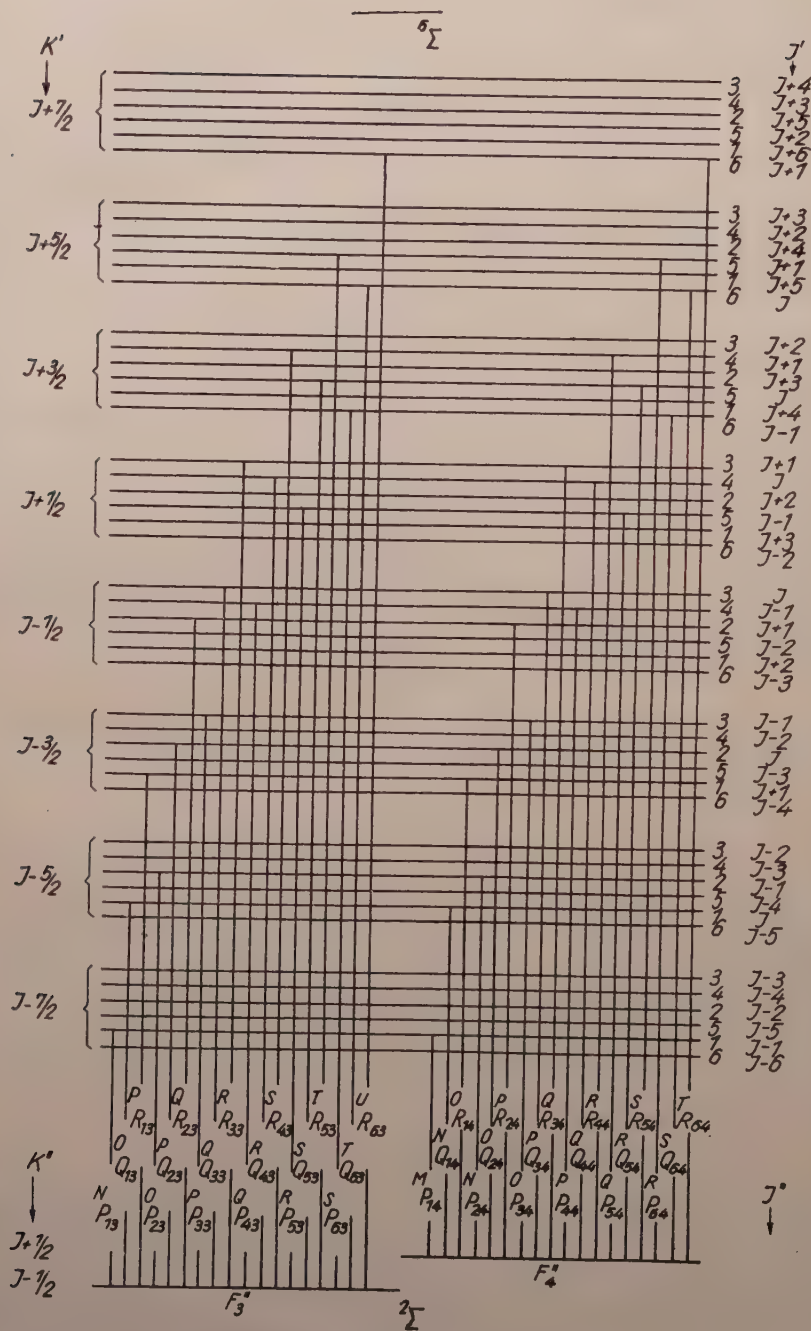 ⁶Σ
K' J'
J+7/2
3 J+4
4 J+3
2 J+5
5 J+2
1 J+6
6 J+1
J+5/2
3 J+3
4 J+2
2 J+4
5 J+1
1 J+5
6 J
J+3/2
3 J+2
4 J+1
2 J+3
5 J
1 J+4
6 J-1
J+1/2
3 J+1
4 J
2 J+2
5 J-1
1 J+3
6 J-2
J-1/2
3 J
4 J-1
2 J+1
5 J-2
1 J+2
6 J-3
J-3/2
3 J-1
4 J-2
2 J
5 J-3
1 J+1
6 J-4
J-5/2
3 J-2
4 J-3
2 J-1
5 J-4
1 J
6 J-5
J-7/2
3 J-3
4 J-4
2 J-2
5 J-5
1 J-1
6 J-6
ᴾR₁₃ ᵠR₂₃ ᴿR₃₃ ˢR₄₃ ᵀR₅₃ ᵁR₆₃ ᴼR₁₄ ᴾR₂₄ ᵠR₃₄ ᴿR₄₄ ˢR₅₄ ᵀR₆₄
ᴼQ₁₃ ᴾQ₂₃ ᵠQ₃₃ ᴿQ₄₃ ˢQ₅₃ ᵀQ₆₃ ᴺQ₁₄ ᴼQ₂₄ ᴾQ₃₄ ᵠQ₄₄ ᴿQ₅₄ ˢQ₆₄
ᴺP₁₃ ᴼP₂₃ ᴾP₃₃ ᵠP₄₃ ᴿP₅₃ ˢP₆₃ ᴹP₁₄ ᴺP₂₄ ᴼP₃₄ ᴾP₄₄ ᵠP₅₄ ᴿP₆₄
K" J"
J+1/2
J-1/2
F₃" F₄"
²Σ